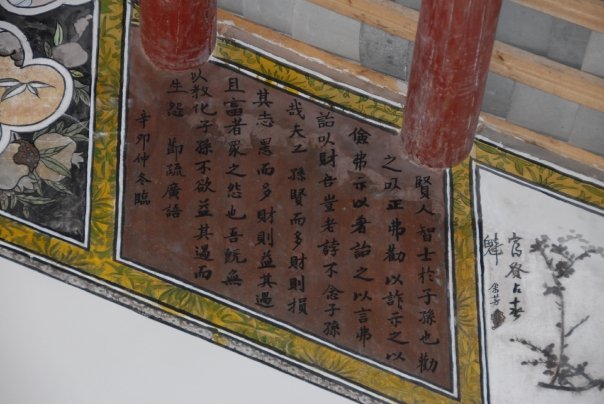 賢人智士於子孫也勸
之以正弗勸以詐示之以
儉弗示以奢詒之以言弗
詒以財吾豈老誖不念子孫
哉夫子孫賢而多財則損
其志愚而多財則益其過
且富者眾之怨也吾既無
以教化子孫不欲益其過而
生怨 節疏廣語
辛卯仲冬臨
占春
魁